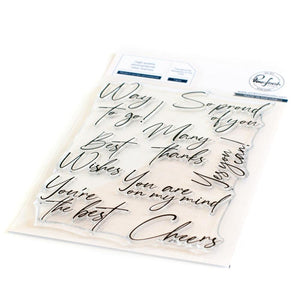 Way to go!
So proud of you
Best Wishes
Many thanks
Yes you can
You're the best
You are on my mind
Cheers